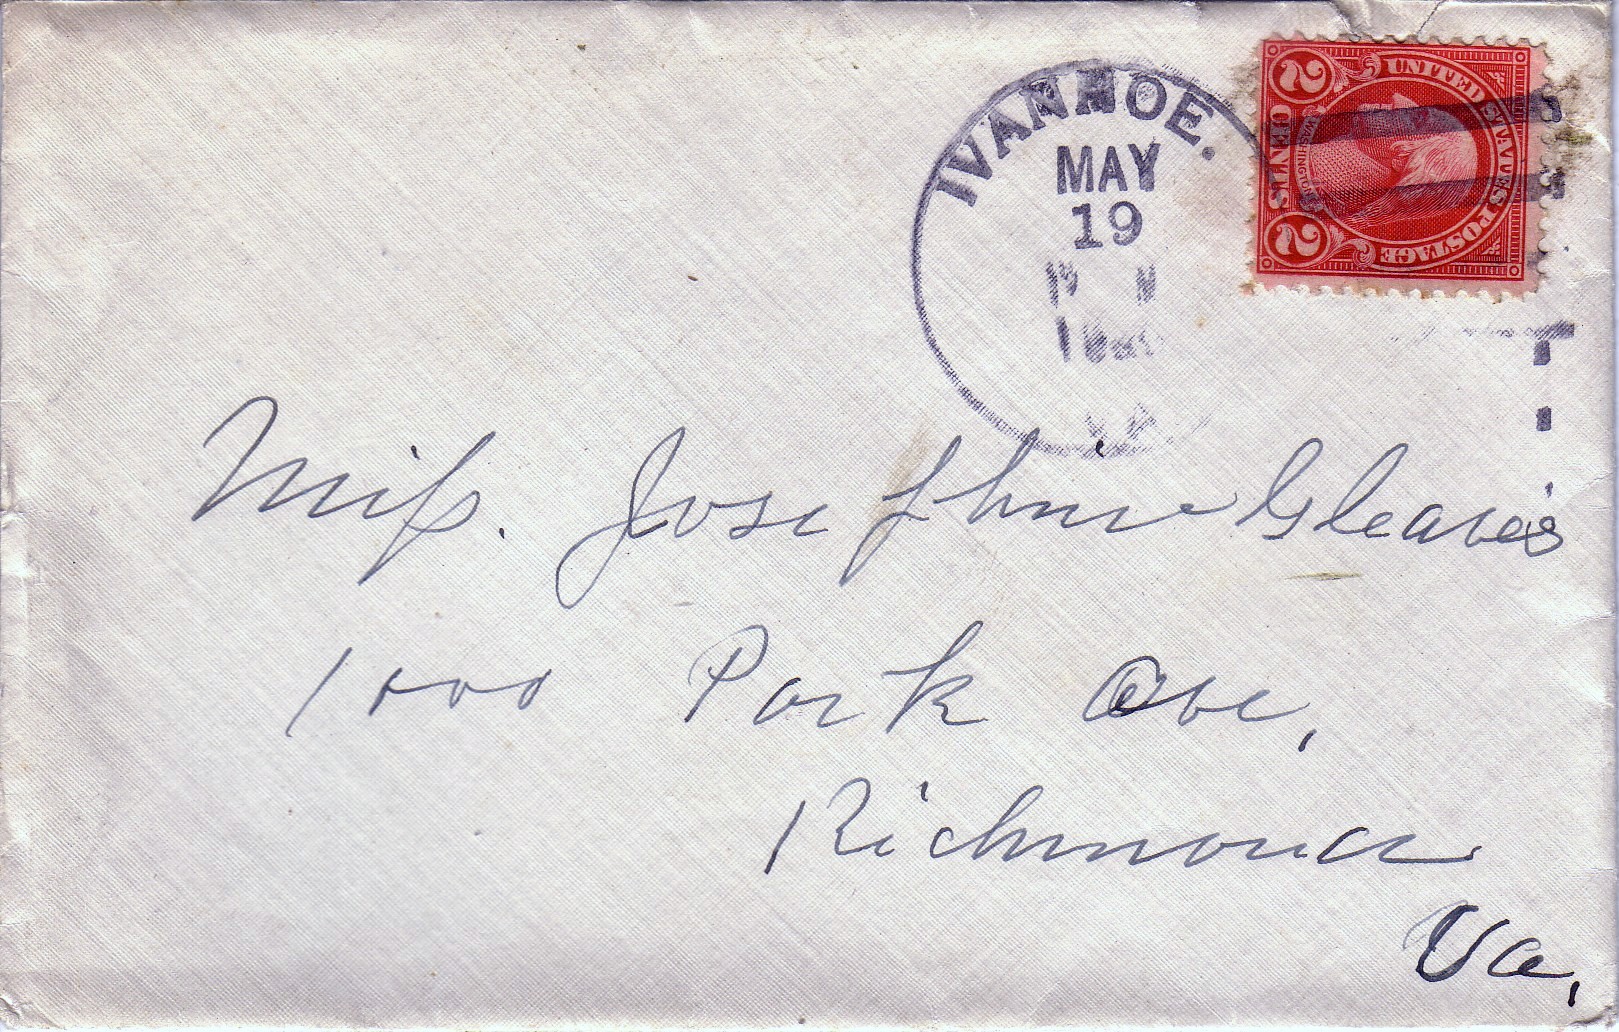 IVANHOE.
MAY
19
UNITED STATES POSTAGE
WASHINGTON
2 CENTS 2
Miss. Josephine Gleaves
1000 Park Ave,
Richmond
Va,